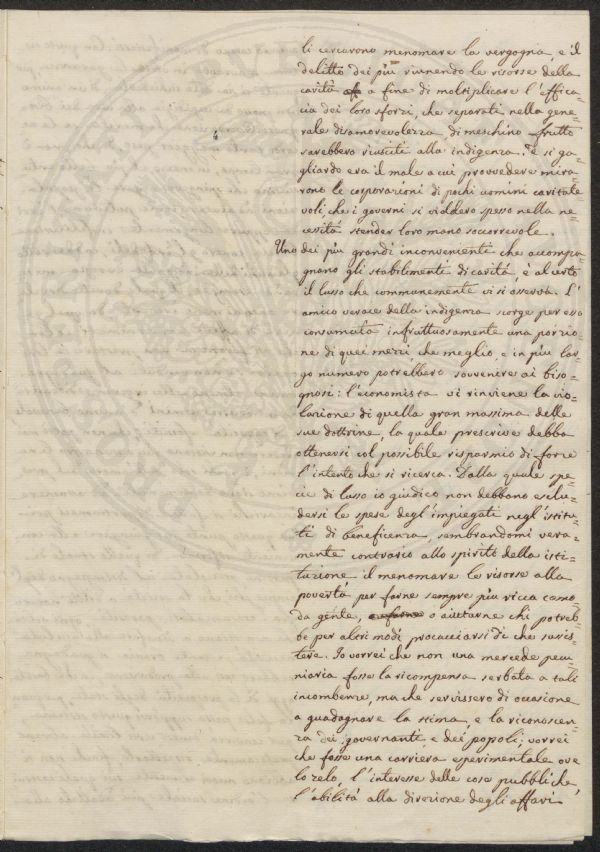 li cercarono menomare la vergogna, e il
delitto dei più riunendo le risorse della
carità a fine di moltiplicare l'effica=
cia dei loro sforzi, che separati nella gene=
rale disamorevolezza, di meschino frutto
sarebbero riusciti alla indigenza. E si ga=
gliardo era il male a cui provvedere mira=
rono le corporazioni di pochi uomini caritate=
voli, che i governi si viddero spesso nella ne=
cessità stender loro mano soccorrevole.
Uno dei più grandi inconvenienti che accompa=
gnano gli stabilimenti di carità, è al certo
il lusso che communemente vi si osserva. L'
amico verace della indigenza scorge per esso
consumata infruttuosamente una porzio=
ne di quei mezzi, che meglio, e in più lar=
go numero potrebbero sovvenire ai biso=
gnosi: l'economista vi rinviene la vio=
lazione di quella gran massima delle
sue dottrine, la quale prescrive debba
ottenersi col possibile risparmio di forze
l'intento che si ricerca. Dalla quale spe=
cie di lusso io giudico non debbono esclu=
dersi le spese degl'impiegati negl'istitu=
ti di beneficenza, sembrandomi vera=
mente contrario allo spirito della isti=
tuzione il menomare le risorse alla
povertà per farne sempre più ricca camo=
da gente, o aiutarne chi potreb=
be per altri modi procacciarsi di che sussis=
tere. Io vorrei che non una mercede pecu=
niaria fosse la ricompensa serbata a tali
incombenze, ma che servissero di occasione
a guadagnare la stima, e la riconoscen=
za dei governanti e dei popoli; vorrei
che fosse una carriera esperimentale ove
lo zelo, l'interesse delle cose pubbliche,
l'abilità alla direzione degli affari